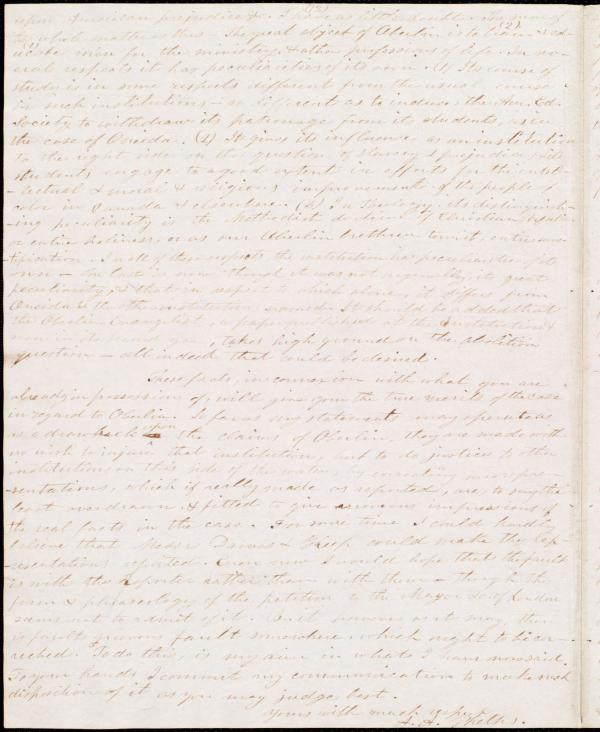 upon American prejudice &c. I have as little doubt. The true of
which matter is thus. The great object of Oberlin is to train & ed-
ucate men for the ministry, & other professions of life. In sev-
eral respects it has peculiarities of its own. (1) Its course of
study is in some respects different from the usual course
in such institutions – so different as to induce the Am. Ed.
Society to withdraw its patronage from its students, as in
the case of Oneida. (2) It gives its influence as an institution
to the right side on the question of slavery & prejudice, & its
students engage to a good extent in efforts for the intel-
-lectual & moral & religious improvement of the people of
color in Canada & elsewhere. (3) In theology, its distinguish-
-ing peculiarity is the Methodist doctrine of Christian
or entire holiness, or as our Oberlin brethren term it, entire sanc-
tification. In all of these respects the institution has peculiarities of its
own – the last is now though it was not originally, its great
peculiarity, & that in respect to which alone, it differs from
Oneida & the other institutions named. It should be added that
the Oberlin Evangelist, a paper published at the institution &
now in its second year, takes high ground on the Abolition
question – all indeed that could be desired.
These facts, in connexion with what you are
already in possession of, will give you the true merits of the case
in regard to Oberlin. So far as my statements may operate as
as a drawback upon the claims of Oberlin, they are made with
no wish to injure that institution, but to do justice to other
institutions on this side of the water, by correcting misrepre-
-sentations, which if really made as reported, are, to say the
least overdrawn & fitted to give erroneous impressions of
the real facts in the case. For some time I could hardly
believe that Messrs Dawes & Keep could make the rep-
resentations reported. Even now I would hope that the fault
is with the reporter rather than with them – though the
form & phraseology of the petition to the Mayor &c of London
seems not to admit of it. But it as it may, there
is fault, grievous fault somewhere, which ought to be cor-
rected. To do this, is my aim in what I have now said.
To your hands I commit my communication to make such
disposition of it as you may judge best.
Yours with much respect
A. A. Phelps.